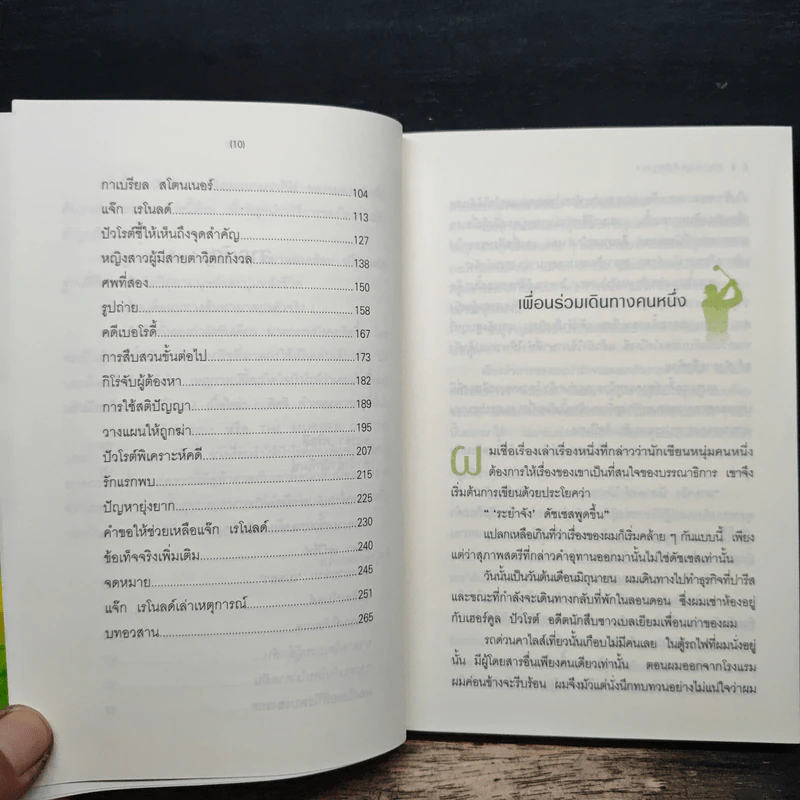 (10)
กาเบรียล สโตนเนอร์ 104
แจ๊ก เรโนลด์ 113
ปัวโรต์ชี้ให้เห็นถึงจุดสำคัญ 127
หญิงสาวผู้มีสายตาวิตกกังวล 138
ศพที่สอง 150
รูปถ่าย 158
คดีเบอโรดี้ 167
การสืบสวนขั้นต่อไป 173
กิโร่จับผู้ต้องหา 182
การใช้สติปัญญา 189
วางแผนให้ถูกฆ่า 195
ปัวโรต์พิเคราะห์คดี 207
รักแรกพบ 215
ปัญหายุ่งยาก 225
คำขอให้ช่วยเหลือแจ๊ก เรโนลด์ 230
ข้อเท็จจริงเพิ่มเติม 240
จดหมาย 245
แจ๊ก เรโนลด์เล่าเหตุการณ์ 251
บทอวสาน 265
เพื่อนร่วมเดินทางคนหนึ่ง
ผมเชื่อเรื่องเล่าเรื่องหนึ่งที่กล่าวว่านักเขียนหนุ่มคนหนึ่ง
ต้องการให้เรื่องของเขาเป็นที่สนใจของบรรณาธิการ เขาจึง
เริ่มต้นการเขียนด้วยประโยคว่า
" 'ระยำจัง' ดัชเชสพูดขึ้น"
แปลกเหลือเกินที่ว่าเรื่องของผมก็เริ่มคล้าย ๆ กันแบบนี้ เพียง
แต่ว่าสุภาพสตรีที่กล่าวคำอุทานออกมานั้นไม่ใช่ดัชเชสเท่านั้น
วันนั้นเป็นวันต้นเดือนมิถุนายน ผมเดินทางไปทำธุรกิจที่ปารีส
และขณะที่กำลังจะเดินทางกลับที่พักในลอนดอน ซึ่งผมเช่าห้องอยู่
กับเฮอร์คูล ปัวโรต์ อดีตนักสืบชาวเบลเยียมเพื่อนเก่าของผม
รถด่วนคาไลส์เที่ยวนั้นเกือบไม่มีคนเลย ในตู้รถไฟที่ผมนั่งอยู่
นั้น มีผู้โดยสารอื่นเพียงคนเดียวเท่านั้น ตอนผมออกจากโรงแรม
ผมค่อนข้างจะรีบร้อน ผมจึงมัวแต่นั่งนึกทบทวนอย่างไม่แน่ใจว่าผม